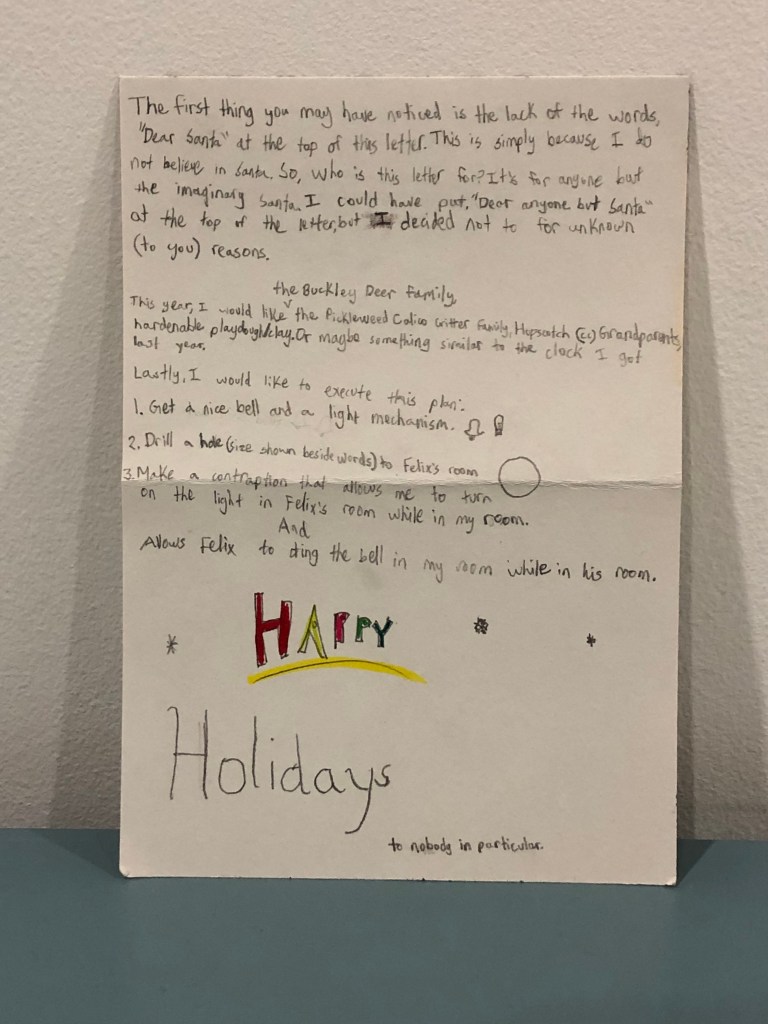 The first thing you may have noticed is the lack of the words,
"Dear Santa" at the top of this letter. This is simply because I do
not believe in Santa. So, who is this letter for? It's for anyone but
the imaginary Santa. I could have put, "Dear anyone but Santa"
at the top of the letter, but I decided not to for unknown
(to you) reasons.
the Buckley Deer family,
This year, I would like the Pickleweed Calico Critter family, Hopscotch (CC) Grandparents,
hardenable playdough/clay. Or maybe something similar to the clock I got
last year.
Lastly, I would like to execute this plan:
1. Get a nice bell and a light mechanism.
2. Drill a hole (size shown beside words) to Felix's room
3. Make a contraption that allows me to turn
on the light in Felix's room while in my room.
And
Allows Felix to ding the bell in my room while in his room.
HAPPY
Holidays
to nobody in particular.